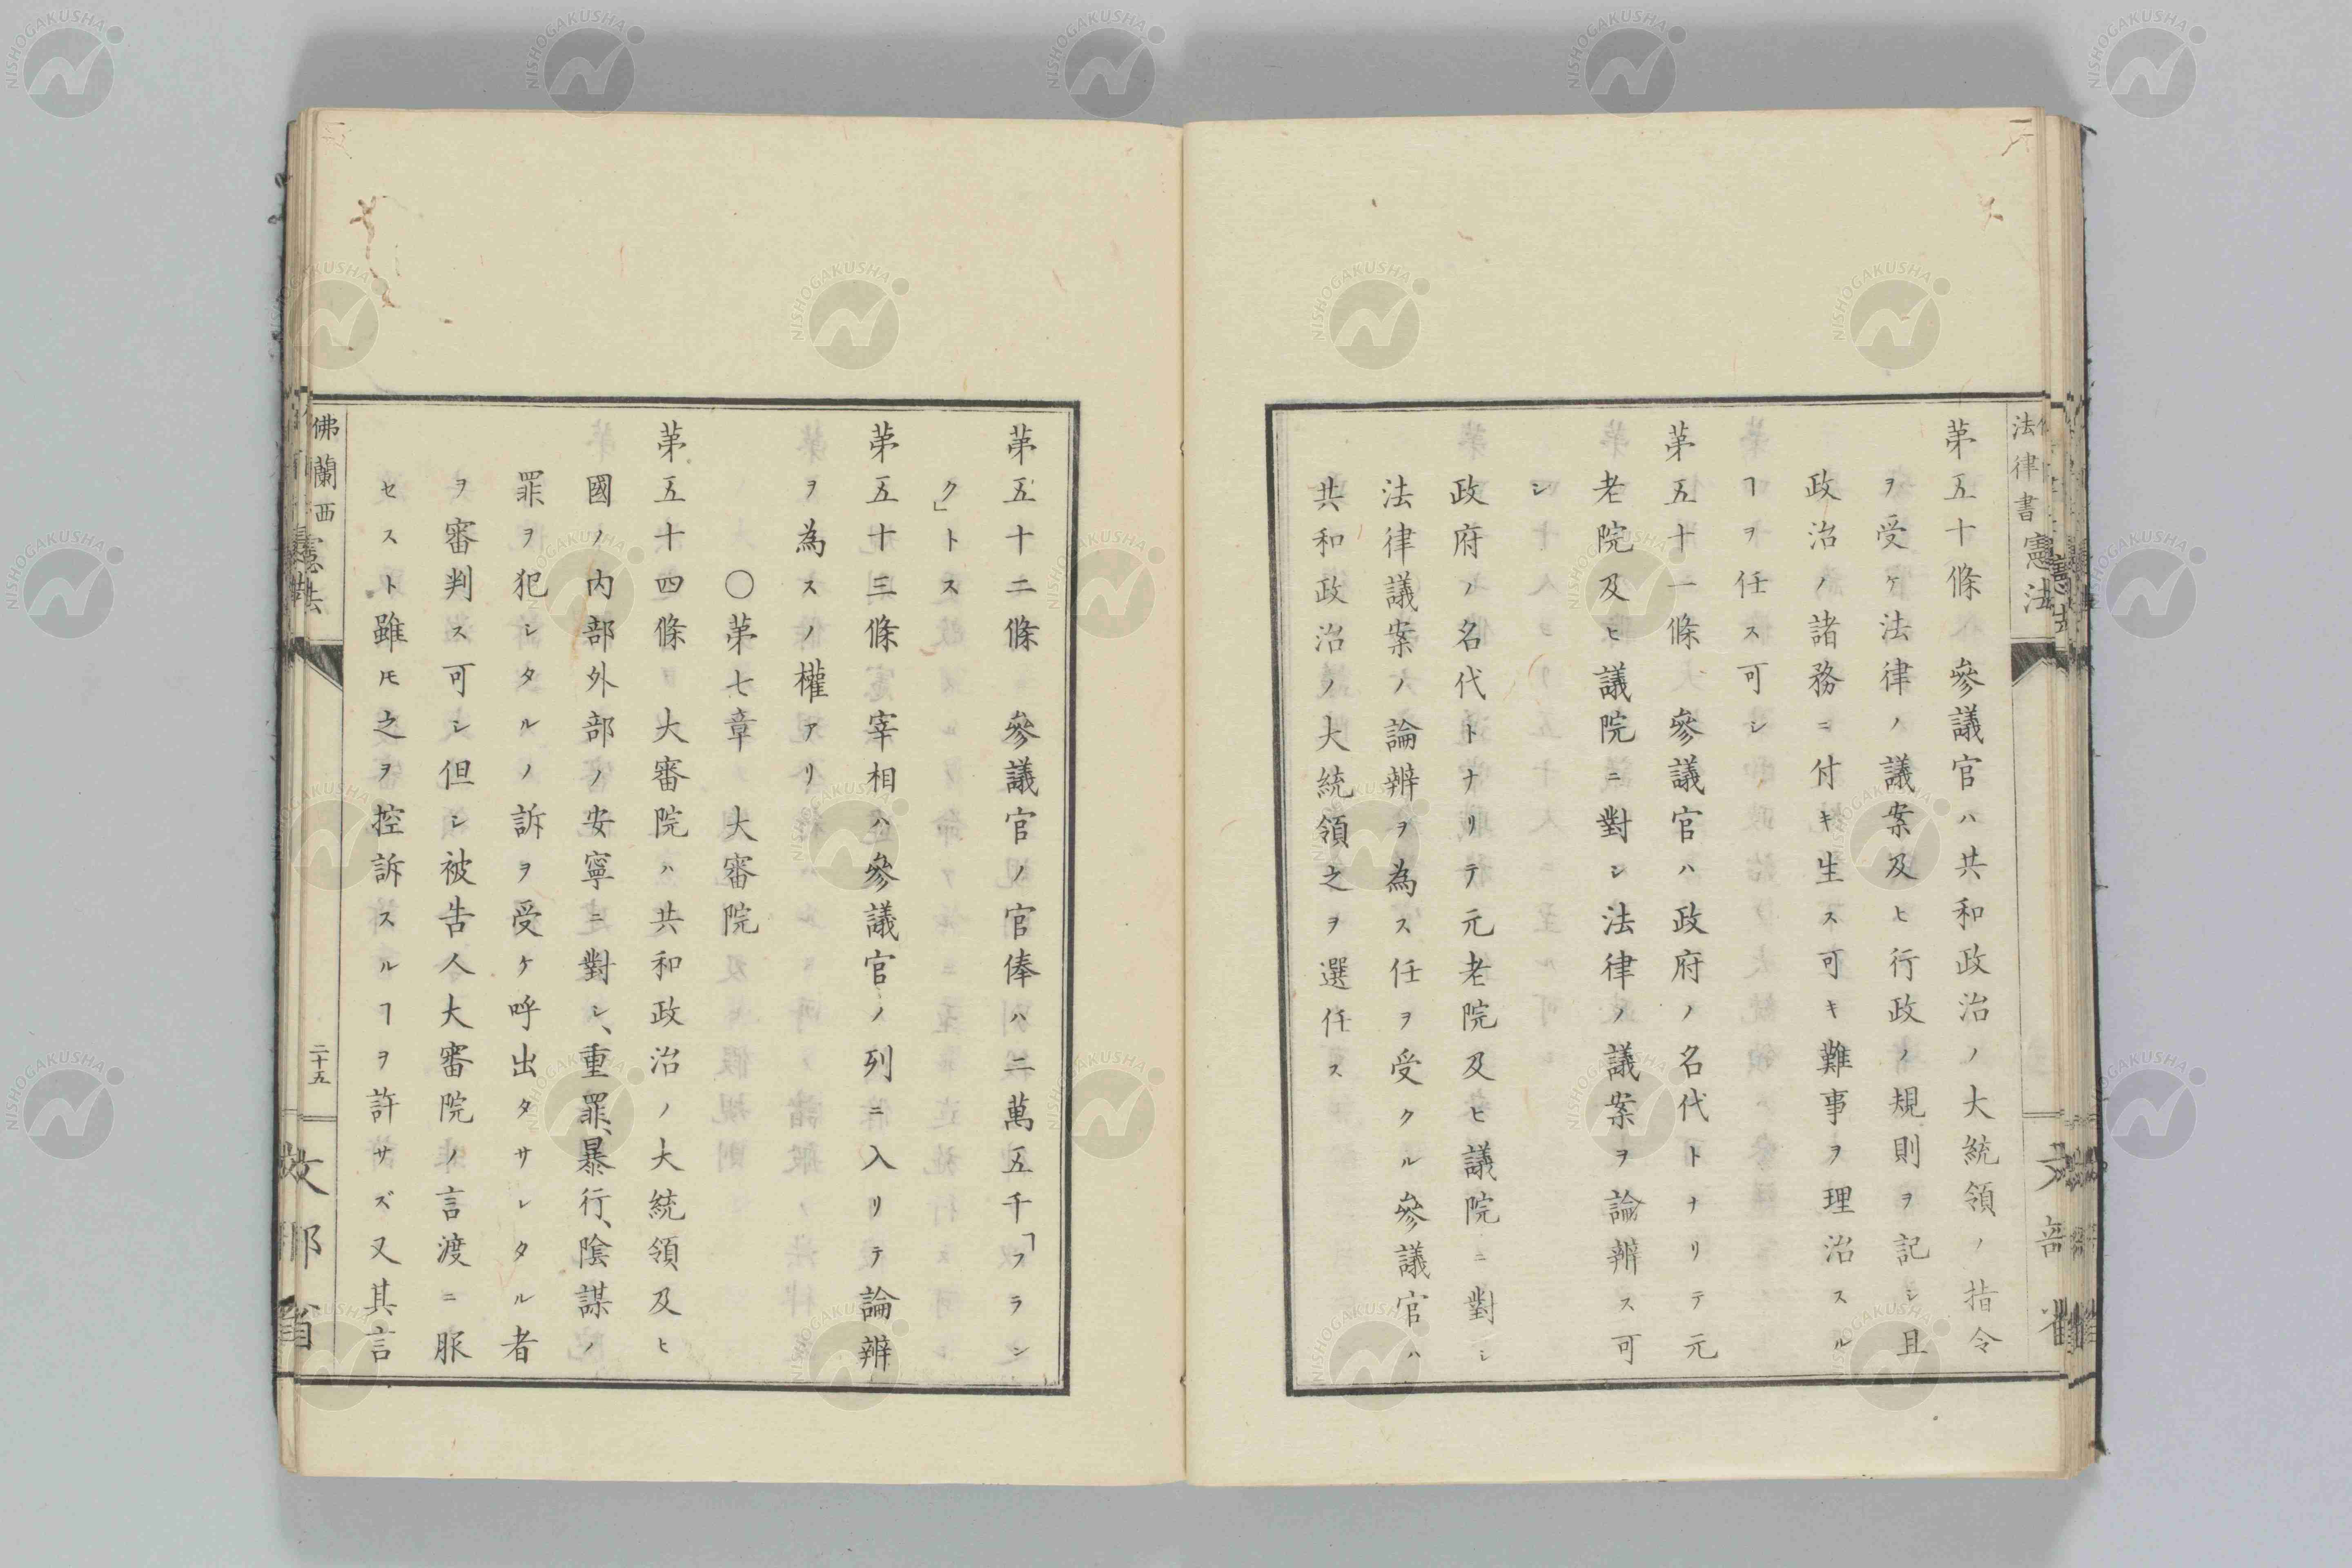 第五十條　參議官ハ共和政治ノ大統領ノ指令
ヲ受ケ法律ノ議案及ヒ行政ノ規則ヲ記シ且
政治ノ諸務ニ付キ生ス可キ難事ヲ理治スル
ヿヲ任ス可シ
第五十一條　參議官ハ政府ノ名代トナリテ元
老院及ヒ議院ニ對シ法律ノ議案ヲ論辨ス可
シ
政府ノ名代トナリテ元老院及ヒ議院ニ對シ
法律議案ノ論辨ヲ為ス任ヲ受クル參議官ハ
共和政治ノ大統領之ヲ選任ス
第五十二條　參議官ノ官俸ハ二萬五千「フラン
ク」トス
第五十三條　宰相ハ參議官ノ列ニ入リテ論辨
ヲ為スノ權アリ
〇第七章　大審院
第五十四條　大審院ハ共和政治ノ大統領及ヒ
國ノ内部外部ノ安寧ニ對シ、重罪、暴行、陰謀ノ
罪ヲ犯シタルノ訴ヲ受ケ呼出タサレタル者
ヲ審判ス可シ但シ被告人大審院ノ言渡ニ服
セスト雖モ之ヲ控訴スルヿヲ許サズ又其言
佛蘭西
憲法
二十五
法律書
憲法
NISHOGAKUSHA